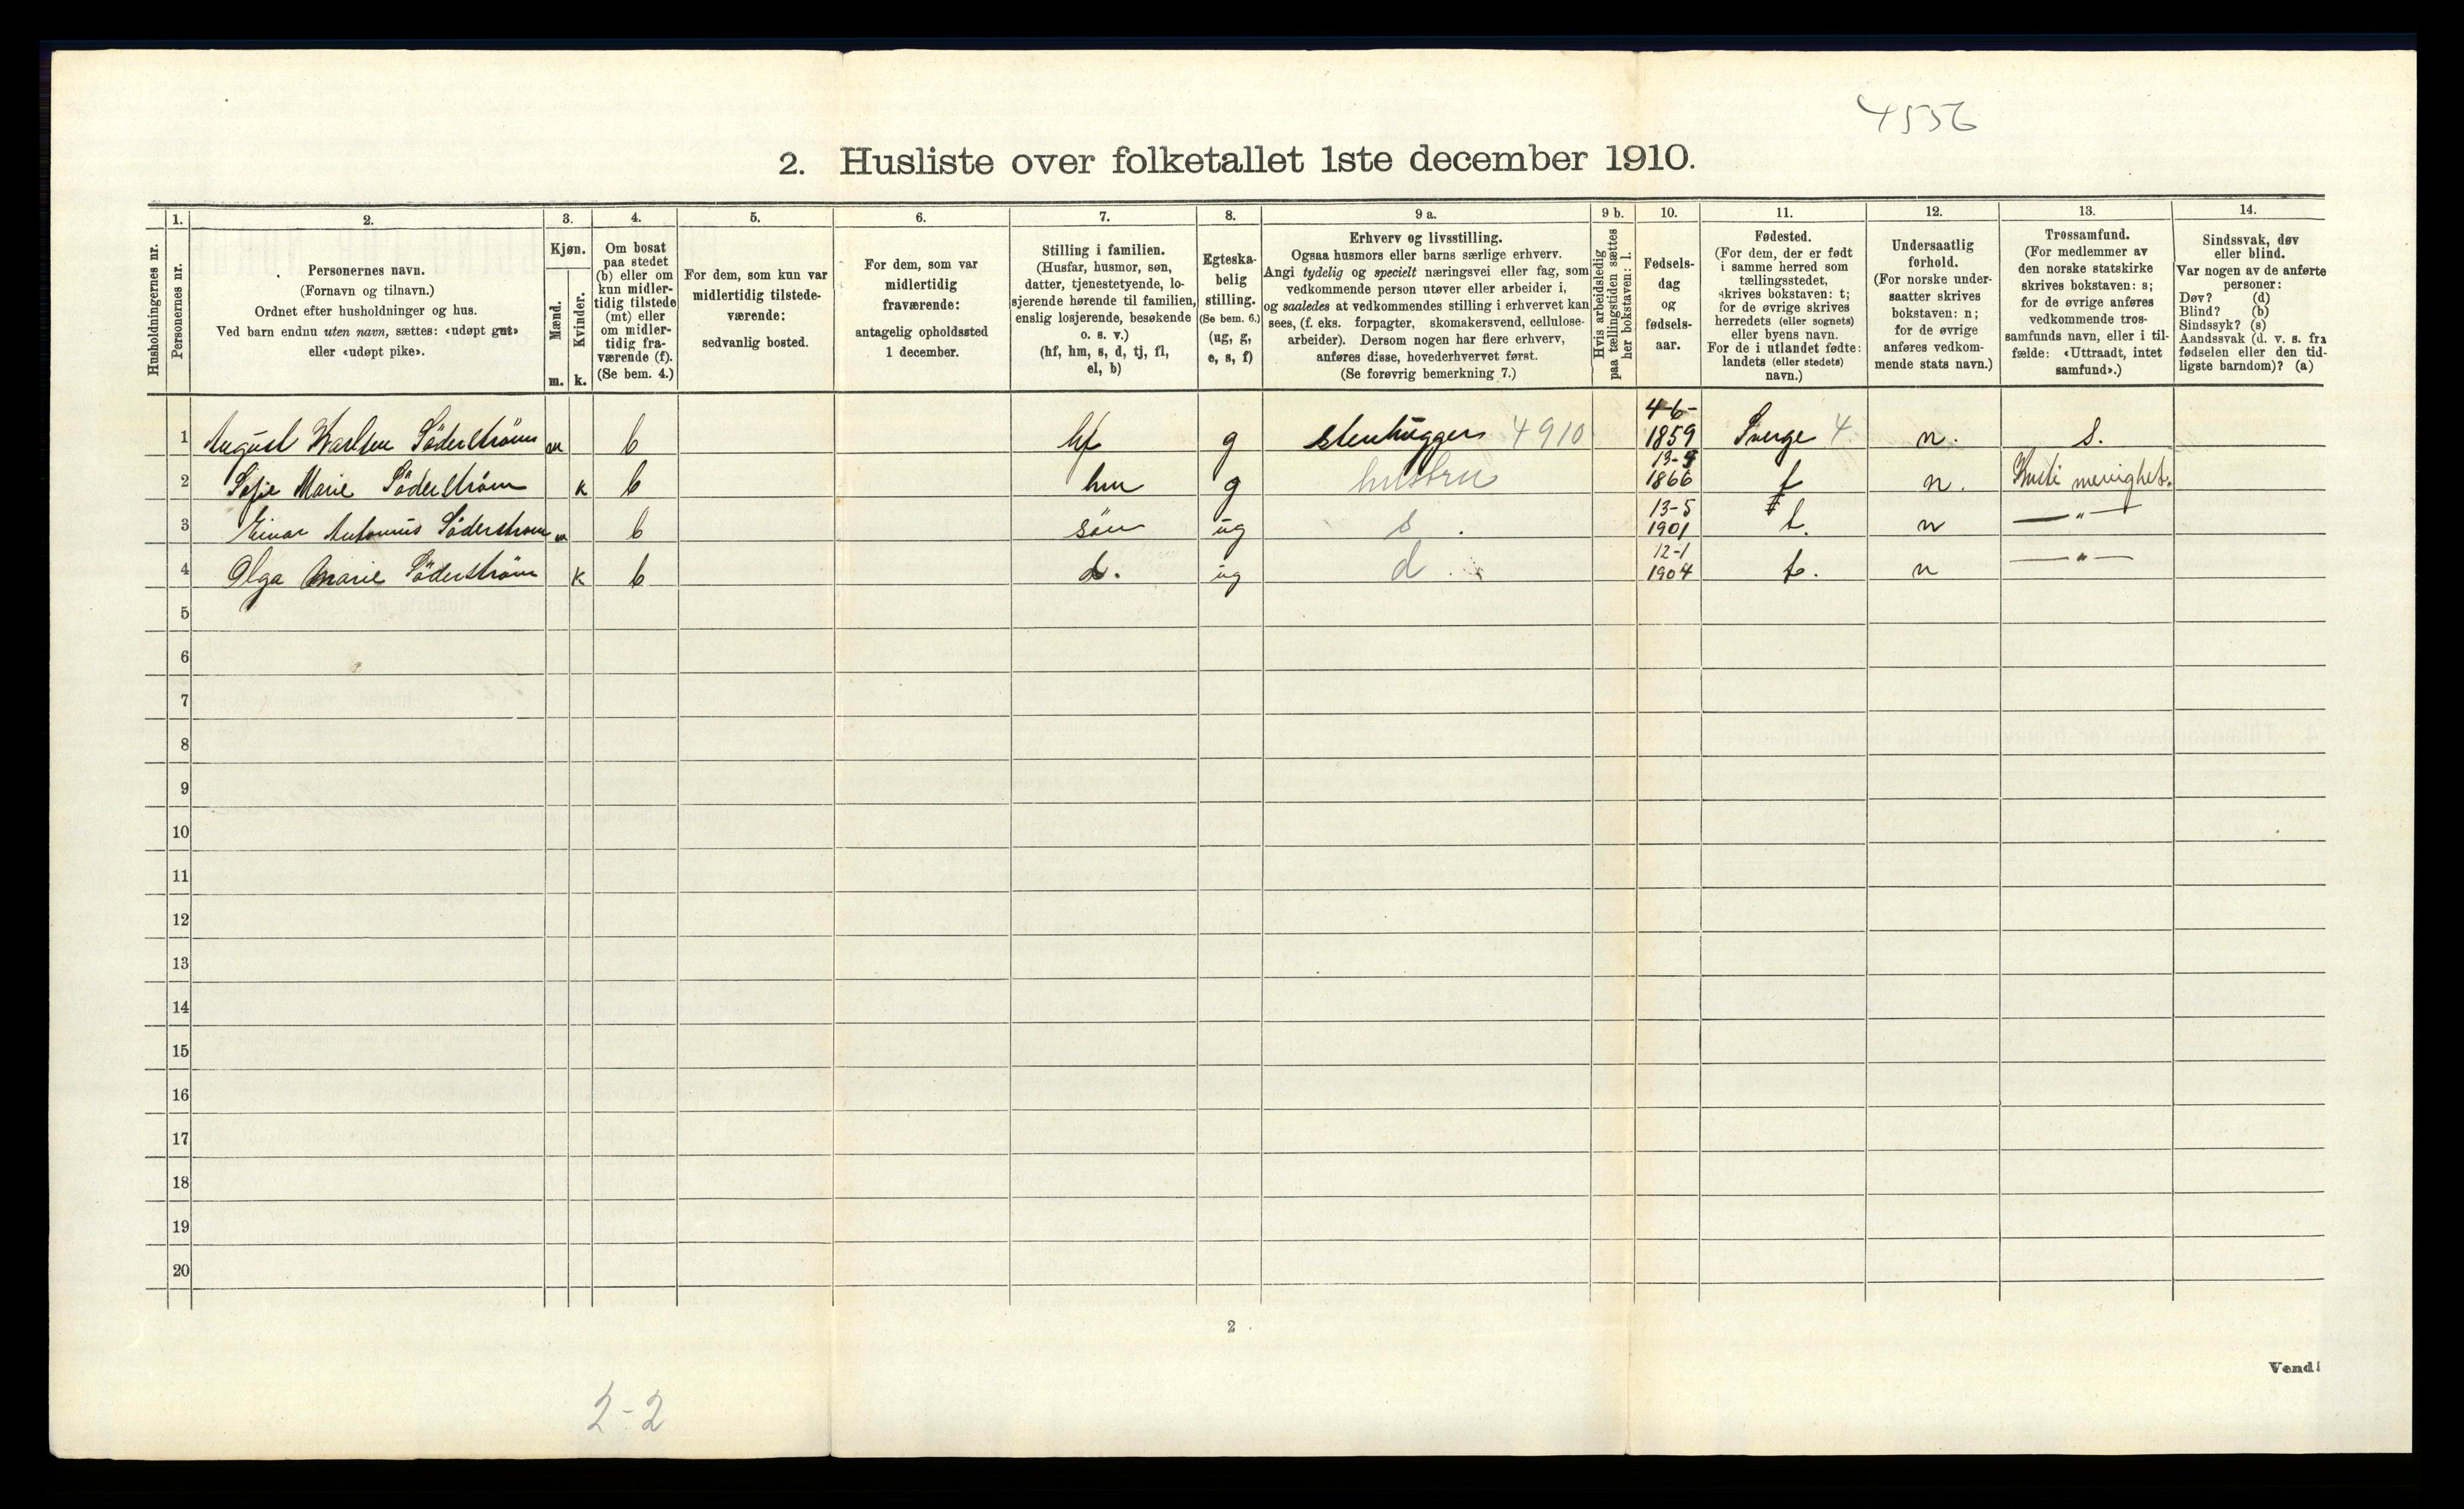 4556
2. Husliste over folketallet 1ste december 1910.
Husholdningernes nr.
1.
Personernes nr.
2.
Personernes navn.
(Fornavn og tilnavn.)
Ordnet efter husholdninger og hus.
Ved barn endnu uten navn, sættes: «udøpt gut»
eller «udøpt pike».
3.
Kjøn.
Mænd.
m.
Kvinder.
k.
4.
Om bosat
paa stedet
(b) eller om
kun midler-
tidig tilstede
(mt) eller
om midler-
tidig fra-
værende (f).
(Se bem. 4.)
5.
For dem, som kun var
midlertidig tilstede-
værende:
sedvanlig bosted.
6.
For dem, som var
midlertidig
fraværende:
antagelig opholdssted
1 december.
7.
Stilling i familien.
(Husfar, husmor, søn,
datter, tjenestetyende, lo-
sjerende hørende til familien,
enslig losjerende, besøkende
o. s. v.)
(hf, hm, s, d, tj, fl,
el, b)
8.
Egteska-
belig
stilling.
(Se bem. 6.)
(ug, g,
e, s, f)
9 a.
Erhverv og livsstilling.
Ogsaa husmors eller barns særlige erhverv.
Angi tydelig og specielt næringsvei eller fag, som
vedkommende person utøver eller arbeider i,
og saaledes at vedkommendes stilling i erhvervet kan
sees, (f. eks. forpagter, skomakersvend, cellulose-
arbeider). Dersom nogen har flere erhverv,
anføres disse, hovederhvervet først.
(Se forøvrig bemerkning 7.)
9 b.
Hvis arbeidsledig
paa tællingstiden sættes
her bokstaven: l.
10.
Fødsels-
dag
og
fødsels-
aar.
11.
Fødested.
(For dem, der er født
i samme herred som
tællingsstedet,
skrives bokstaven: t;
for de øvrige skrives
herredets (eller sognets)
eller byens navn.
For de i utlandet fødte:
landets (eller stedets)
navn.)
12.
Undersaatlig
forhold.
(For norske under-
saatter skrives
bokstaven: n;
for de øvrige
anføres vedkom-
mende stats navn.)
13.
Trossamfund.
(For medlemmer av
den norske statskirke
skrives bokstaven: s;
for de øvrige anføres
vedkommende tros-
samfunds navn, eller i til-
fælde: «Uttraadt, intet
samfund».)
14.
Sindssvak, døv
eller blind.
Var nogen av de anførte
personer:
Døv? (d)
Blind? (b)
Sindssyk? (s)
Aandssvak (d. v. s. fra
fødselen eller den tid-
ligste barndom)? (a)
1 August Karlsen Söderström m b hf g stenhugger 4910 4-6-1859 Sverge 4 n. s.
2 Sofie Marie Söderström k b hm g hustru 13-9 1866 t n. menighet.
3 Einar Antonius Söderstrøm m b sön ug s. 13-5 1901 t. n —〃—
4 Olga Marie Söderström k b d. ug d. 12-1 1904 t. n —〃—
5
6
7
8
9
10
11
12
13
14
15
16
17
18
19
20
2
Vend!
2-2